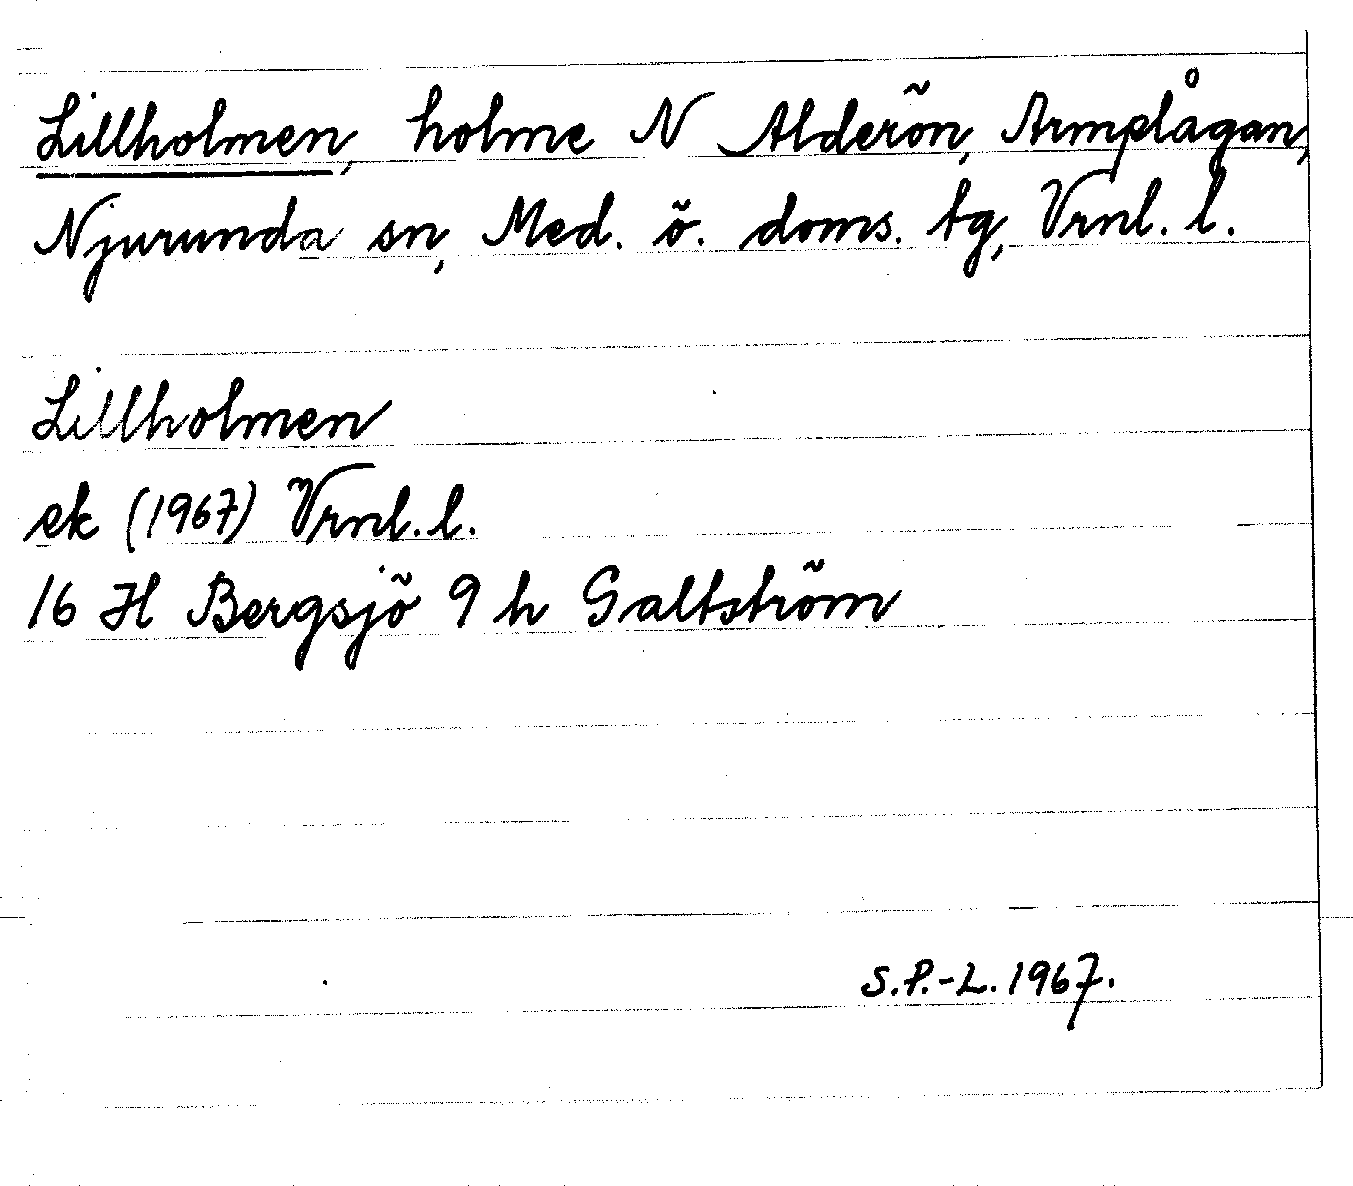 Lillholmen, holme N Alderön, Armplågan,
Njurunda sn, Med. ö. doms. tg, Vrnl. l.
Lillholmen
ek (1967) Vrnl. l.
16 H Bergsjö 9 h Galtström
S.P.-L. 1967.